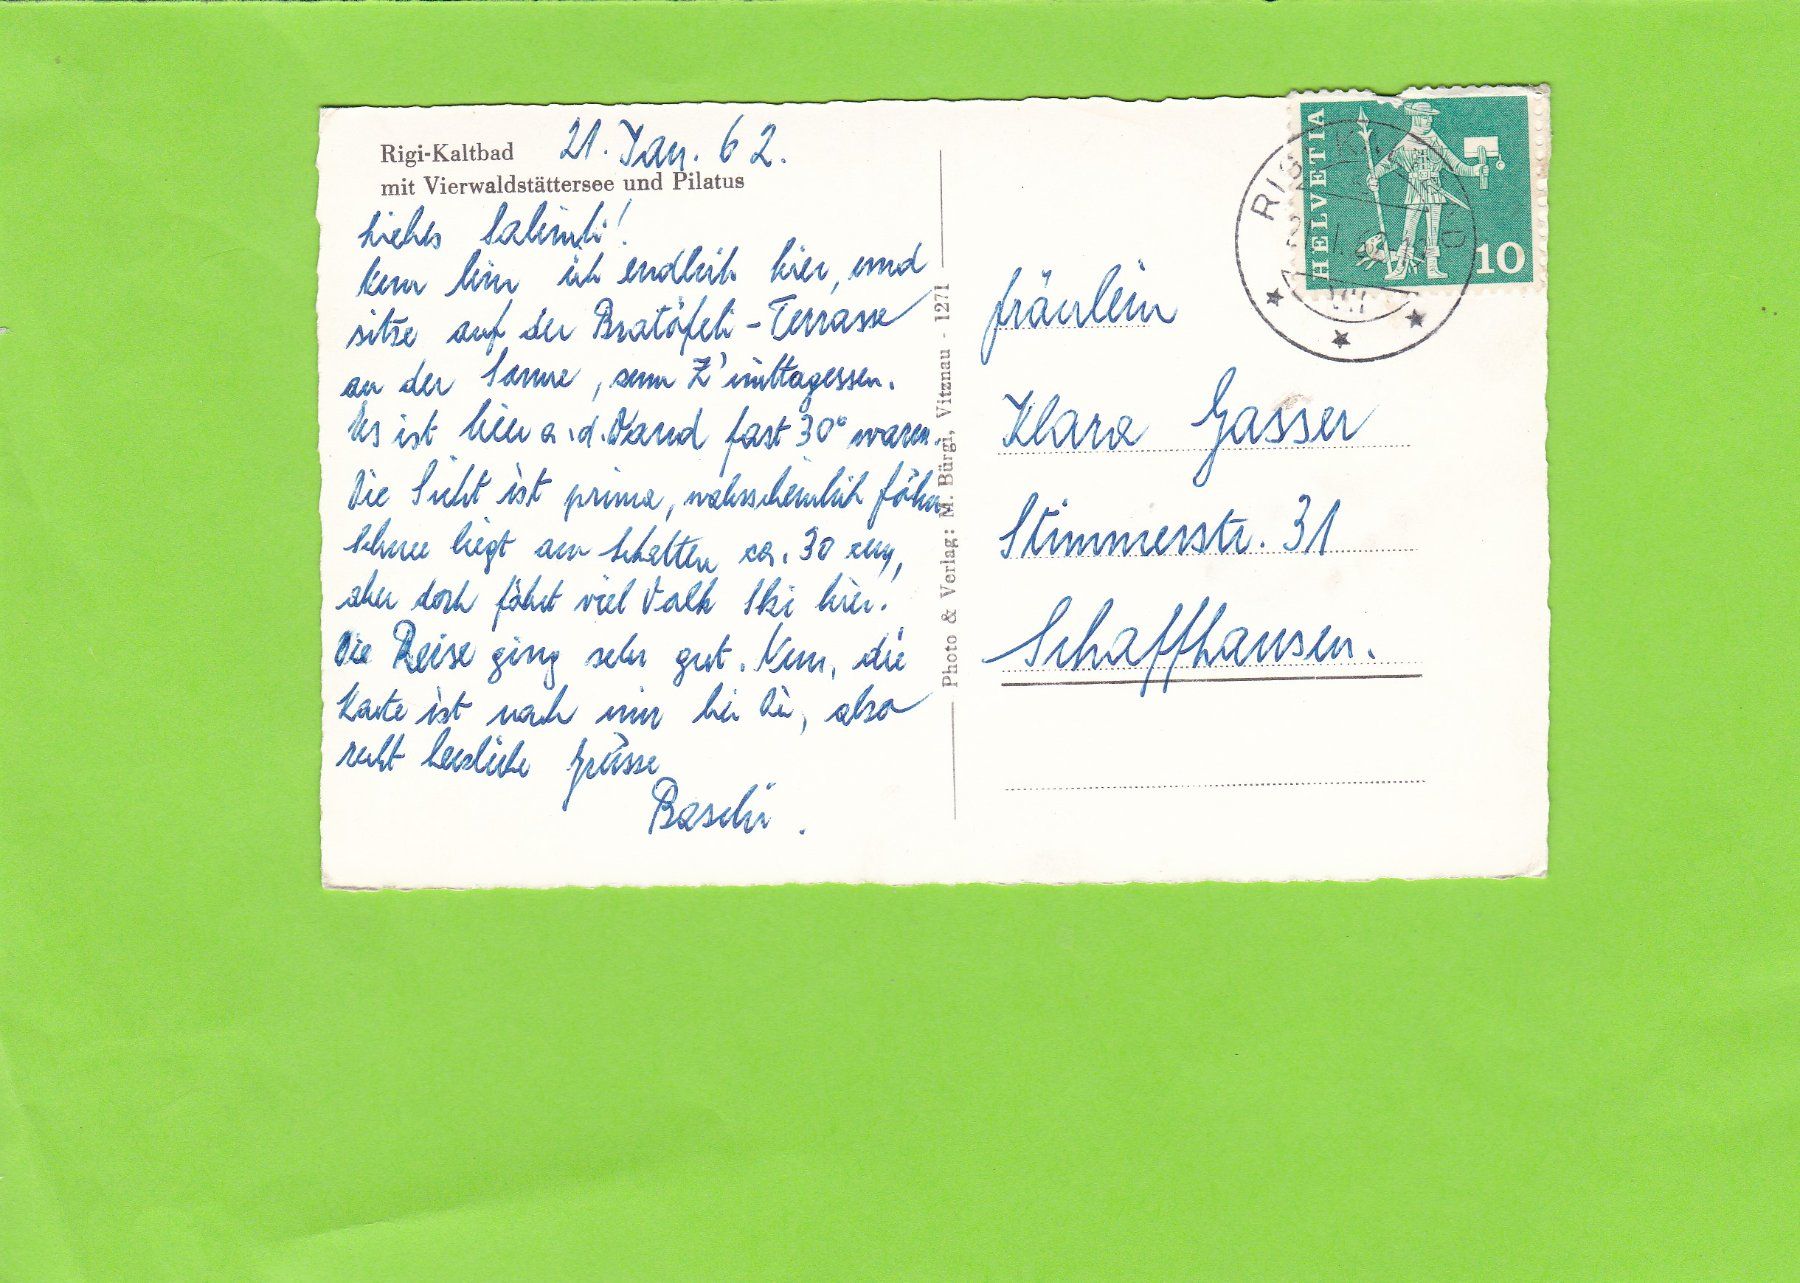 Rigi-Kaltbad
mit Vierwaldstättersee und Pilatus
21. Jan. 62.
Liebes
Nun bin ich endlich hier, und
sitze auf der Bratöfeli-Terrasse
an der Sonne, zum Z'mittagessen.
Es ist hier a.d. Wand fast 30° warm.
Die Sicht ist prima, wahrscheinlich föhn
Schnee liegt am Schatten ca. 30 cm,
aber doch fährt viel Volk Ski hier.
Die Reise ging sehr gut. Nun, die
Karte ist noch mir bei Di, also
recht herzliche Grüsse
Photo & Verlag: M. Bürgi, Vitznau - 1271
HELVETIA
10
RIGI
Fräulein
Klara Gasser
Stimmerstr. 31
Schaffhausen.